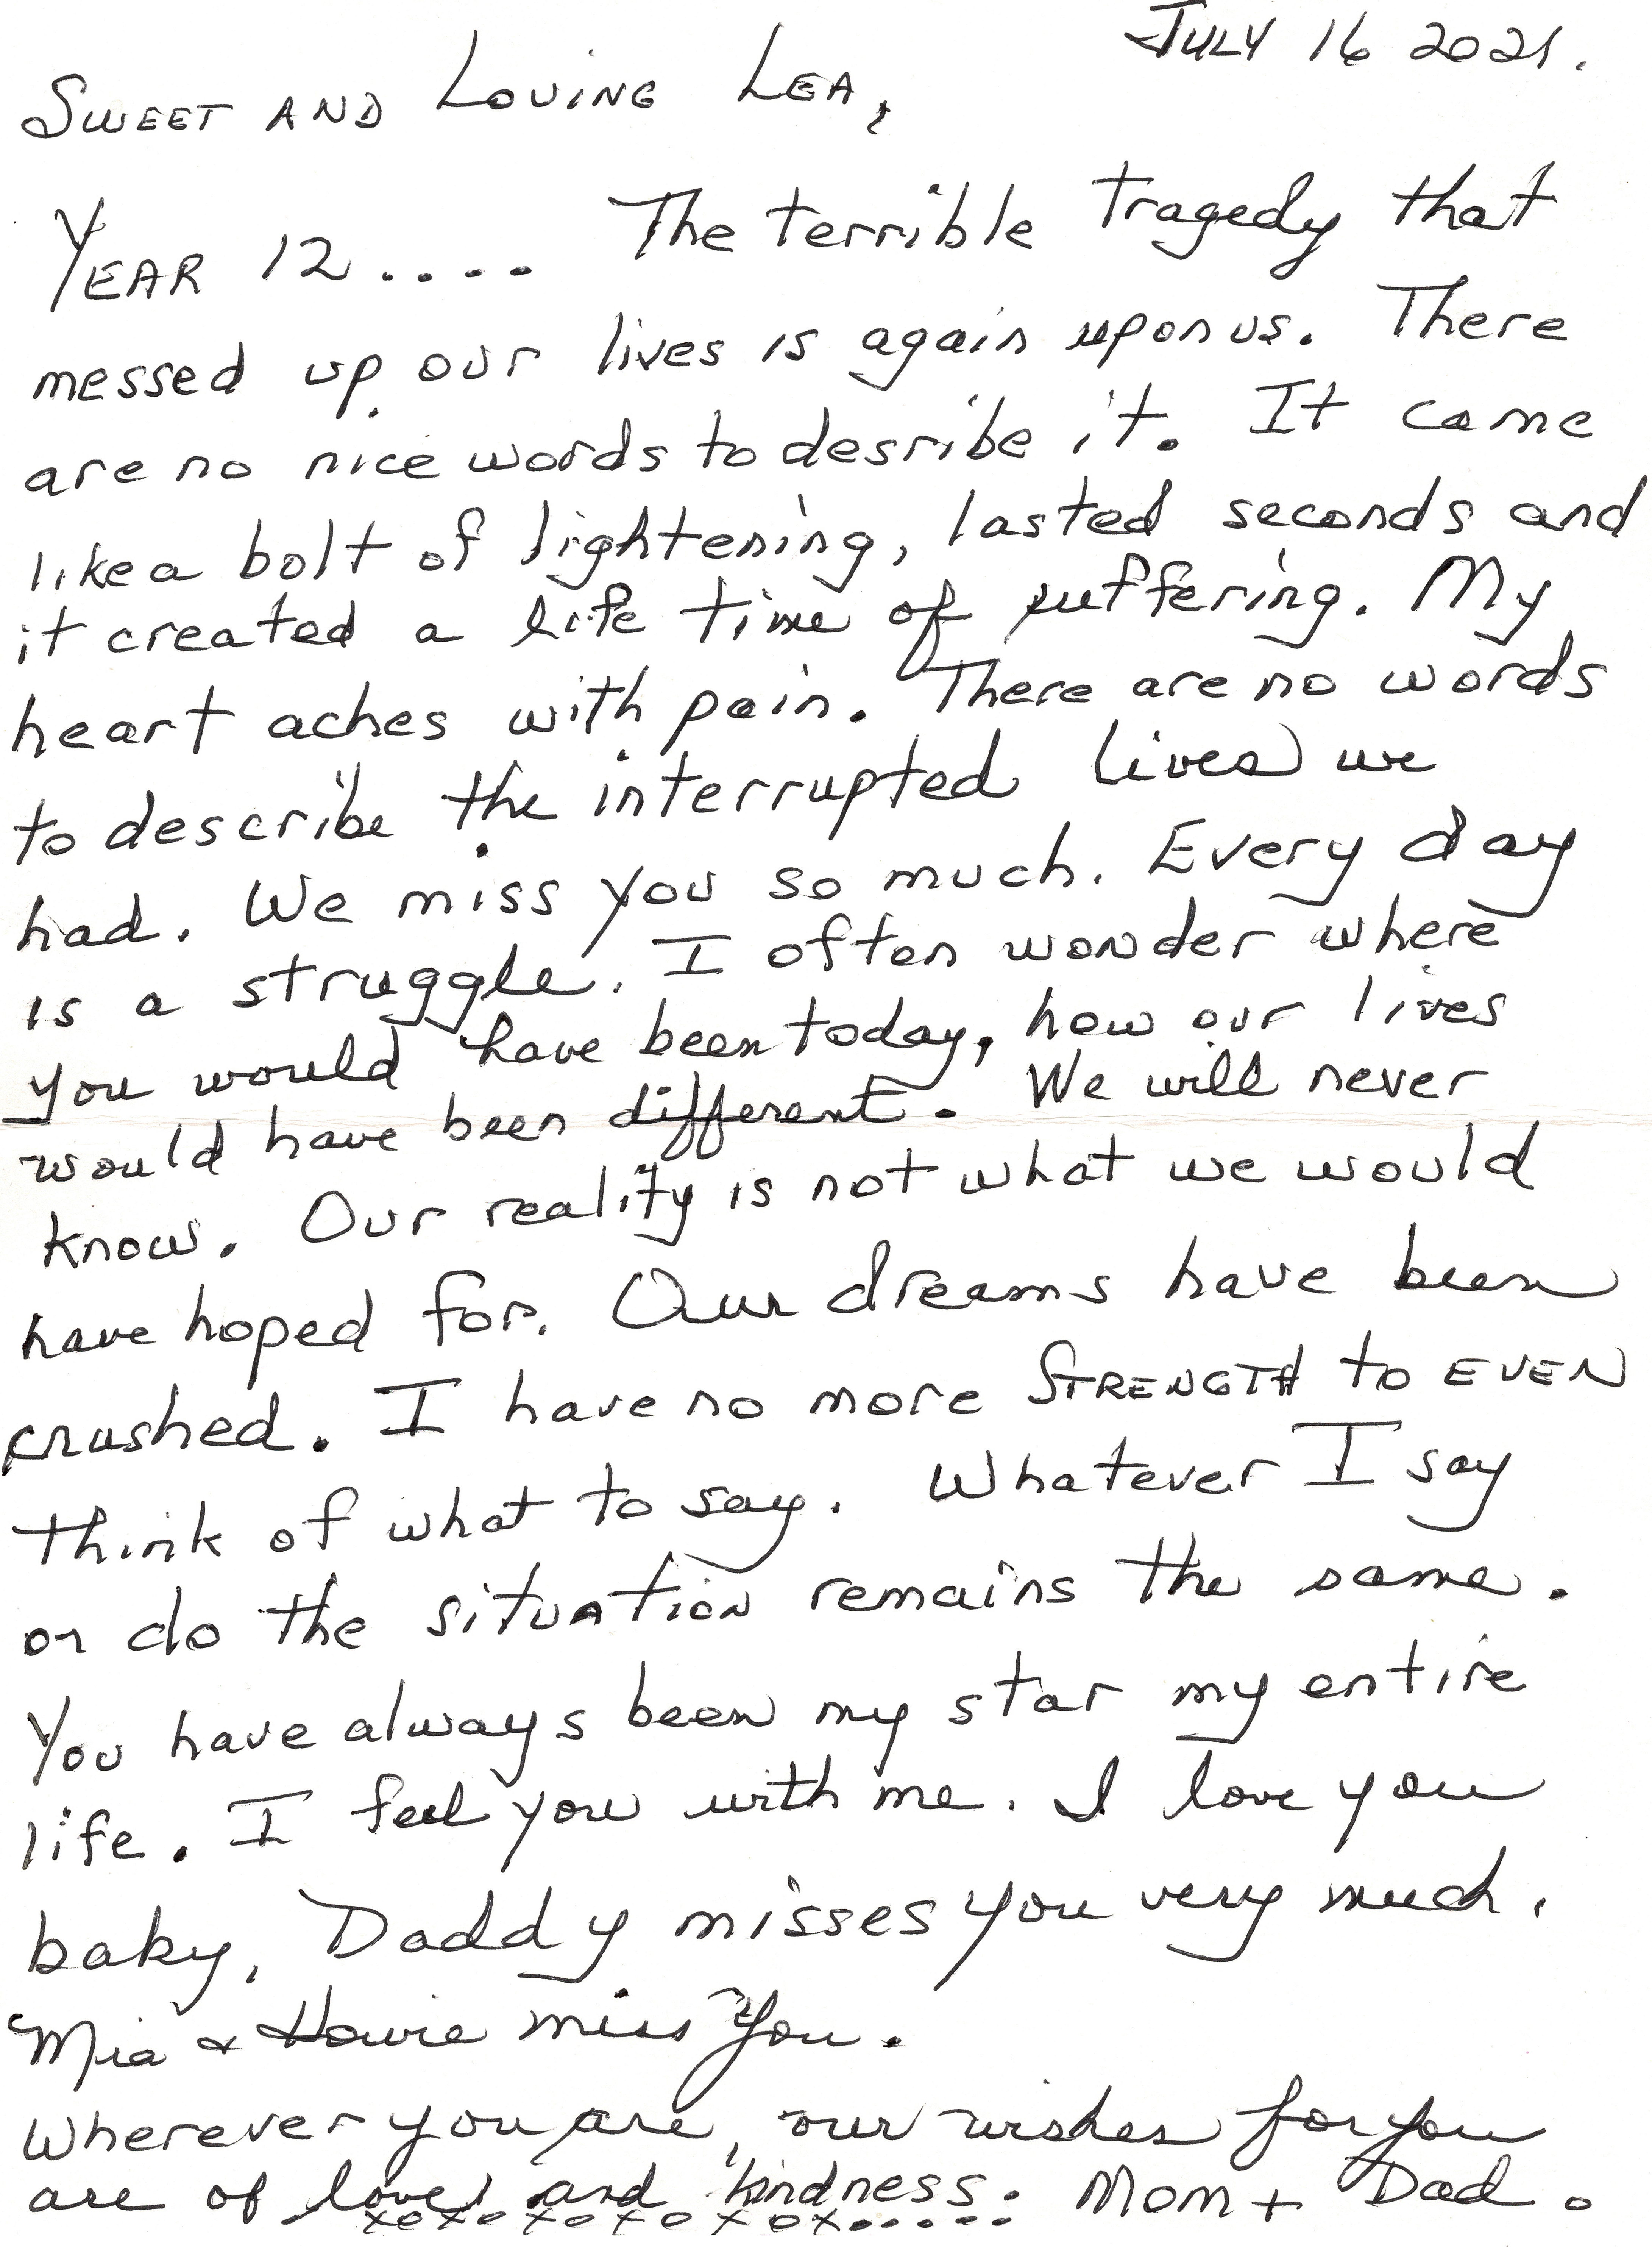 JULY 16 2021.
SWEET AND LOVING LEA,
YEAR 12.... The terrible tragedy that
messed up our lives is again upon us. There
are no nice words to desribe it. It came
like a bolt of lightening, lasted seconds and
it created a life time of suffering. My
heart aches with pain. There are no words
to describe the interrupted lives we
had. We miss you so much. Every day
is a struggle. I often wonder where
you would have been today, how our lives
would have been different. We will never
know. Our reality is not what we would
have hoped for. Our dreams have been
crushed. I have no more STRENGTH to EVEN
think of what to say. Whatever I say
or do the situation remains the same.
You have always been my star my entire
life. I feel you with me. I love you
baby, Daddy misses you very much.
Mia & Howie miss you.
Wherever you are, our wishes for you
are of love and kindness. Mom + Dad.
xoxoxoxoxox.....